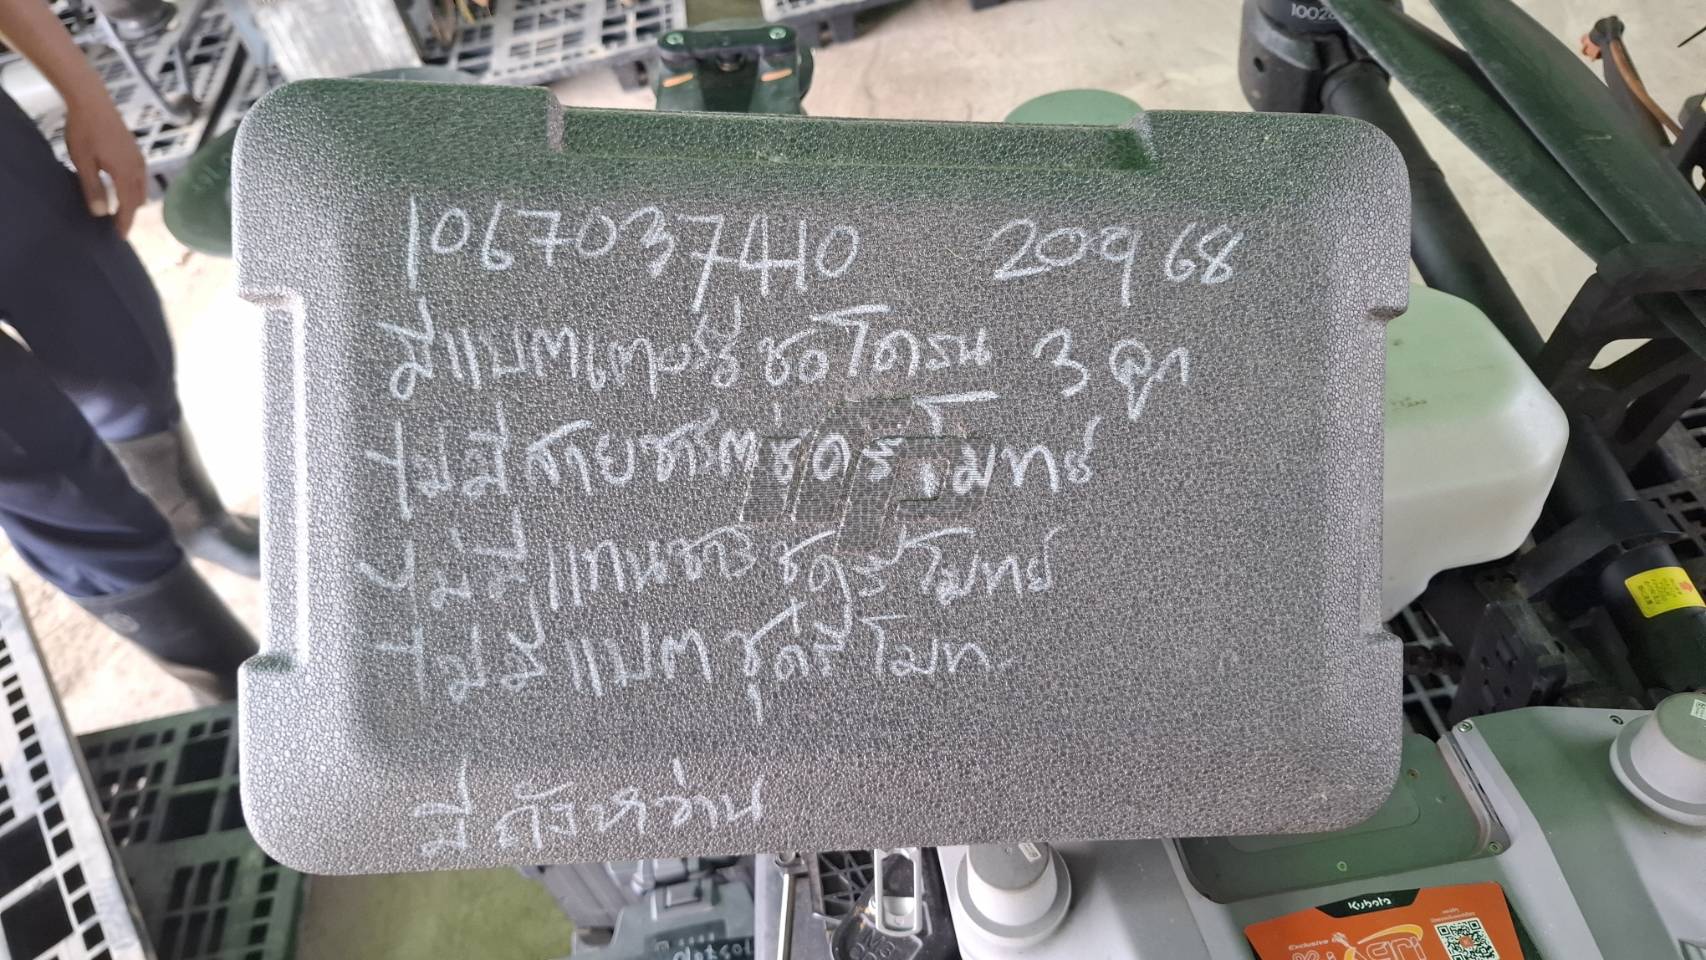 1002
1067037410 20968
มีแบตเตอรี่ ชุดโดรน 3 ลูก
ไม่มีสายชาร์ต ชุดรีโมทย์
ไม่มีแทนชาร์ ชุดรีโมทย์
ไม่มีแบต ชุดรีโมท
มีถังหว่าน
Kubota
Exclusive